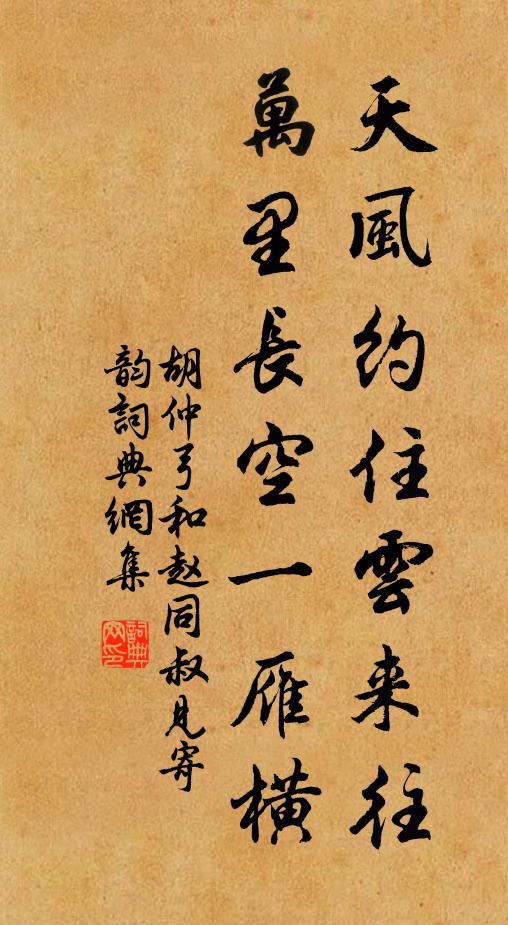 天風約住雲来往
萬里長空一雁橫
胡仲弓和赵同叔見寄
韵詞典網集
詞典網印